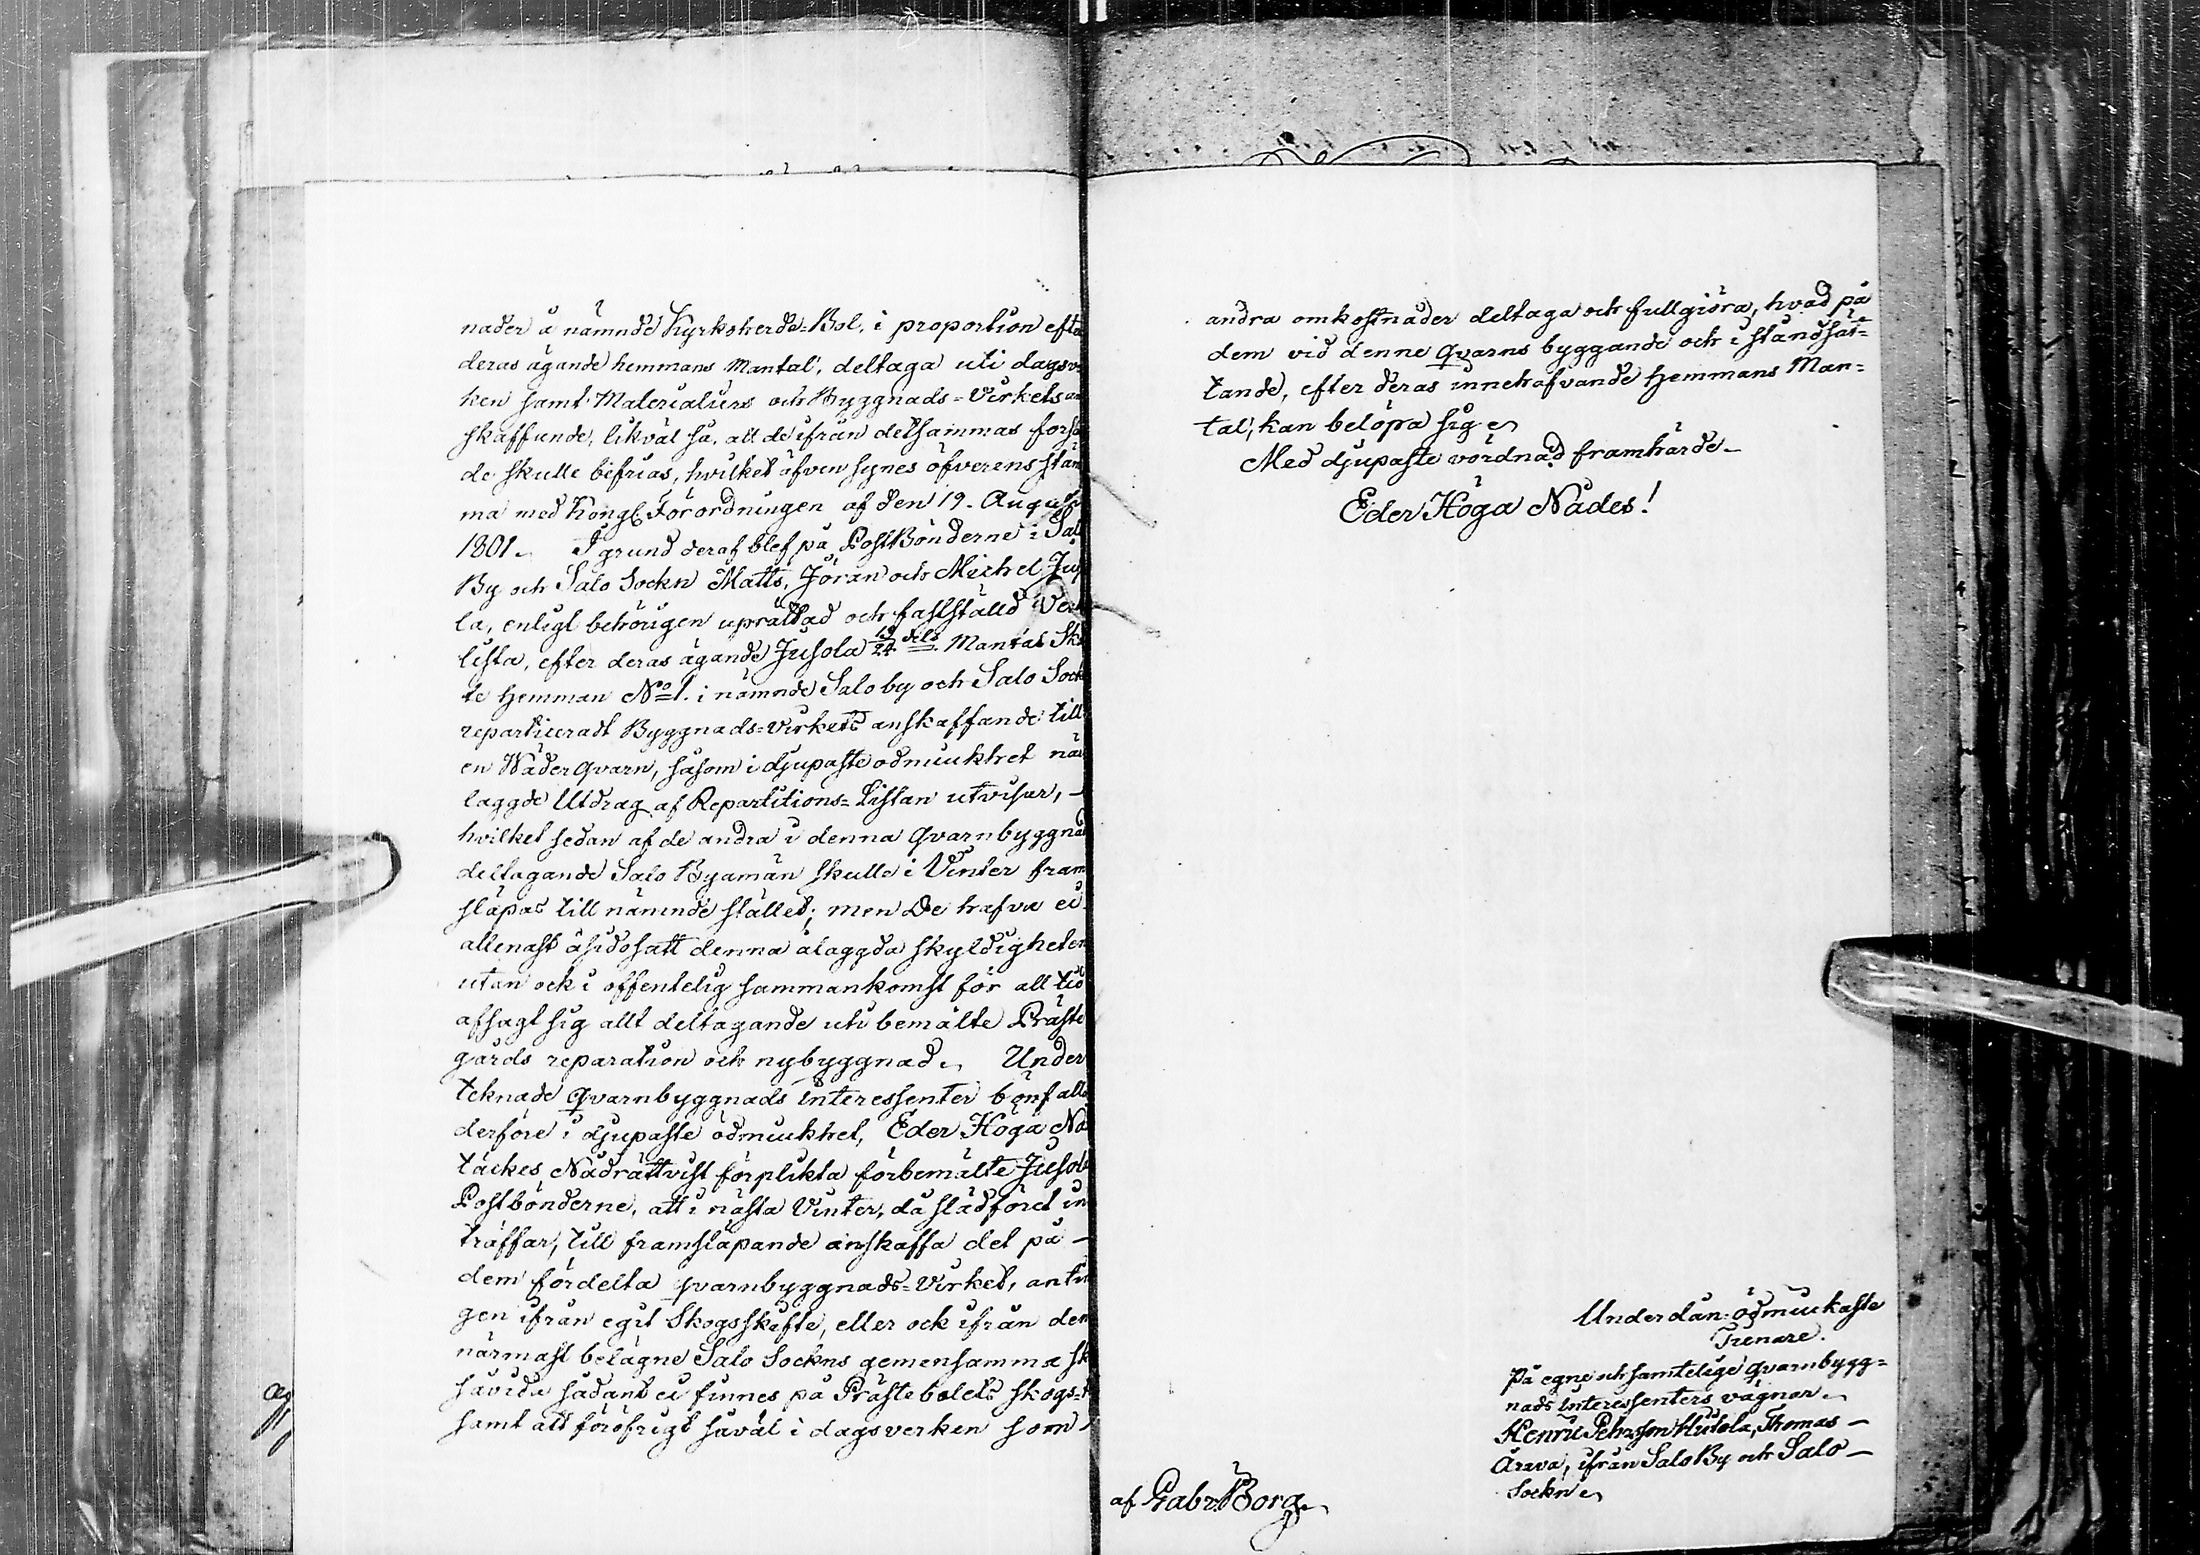 nader å nämnde Kyrkoherde-Bol, i proportion efte
deras ägande hemmans Mantal, deltaga uti dagsv
ken samt Materialiers och Byggnads-Virkets an
skaffande, likväl så, att de ifrån detsammas forsl
de skulle befrias, hvilket äfven synes öfverensstäm
ma med Kongl. Förordningen af den 19. August
1801. I grund deraf blef på PostBönderne i Sal
By och Salo Sockn Matts, Jöran och Michel Juso
la, enligt behörigen uprättad och fastställd Verk
lista, efter deras ägande Jusola 19/24 dels Mantal Ska
te Hemman No 1. i nämnde Salo by och Salo Sock
reparticeradt Byggnads-virkets anskaffande till
en Wäderqvarn, såsom i djupaste ödmiukhet när
laggde Utdrag af Repartitions-Listan utvisar, –
hvilket sedan af de andra i denna Qvarnbyggnad
deltagande Salo Byamän skulle i Vinter fram
släpas till nämnde stället; men De hafva ei
allenast åsidosatt denna ålaggda skyldigheten
utan ock i offentelig sammankomst för all tid
afsagt sig allt deltagande uti bemälte Präste
gårds reparation och nybyggnad. Under
teknade Qvarnbyggnads interessenter bönfalle
derföre i djupaste ödmiukhet, Eder Höga Nå
täckes Nådrättvist förplikta förbemälte Jusola
Postbönderne, att i nästa Vinter, då slädföret in
träffar, till framsläpande anskaffa det på –
dem fördelta qvarnbyggnads-Virket, antin
gen ifrån egit Skogsskifte, eller ock ifrån den
närmast belägne Salo Sockns gemensamma sk
såvida sådant ei finnes på Prästebolets skogs-
samt att föröfrigt såväl i dagsverken som
andra omkostnader deltaga och fullgiöra, hvad på
dem vid denne Qvarns byggande och iståndsät-
tande, efter deras innehafvande Hemmans Man-
tal, kan belöpa sig.
Med djupaste vördnad framhärde –
Eder Höga Nådes!
Underdån-ödmiukaste
Tienare.
På egne och samtelige qvarnbygg-
nads interessenters vägnar.
Henric Pehrsson Huisola, Thomas –
Arava, ifrån Salo By och Salo –
Sockn
af Gabr. Borg.